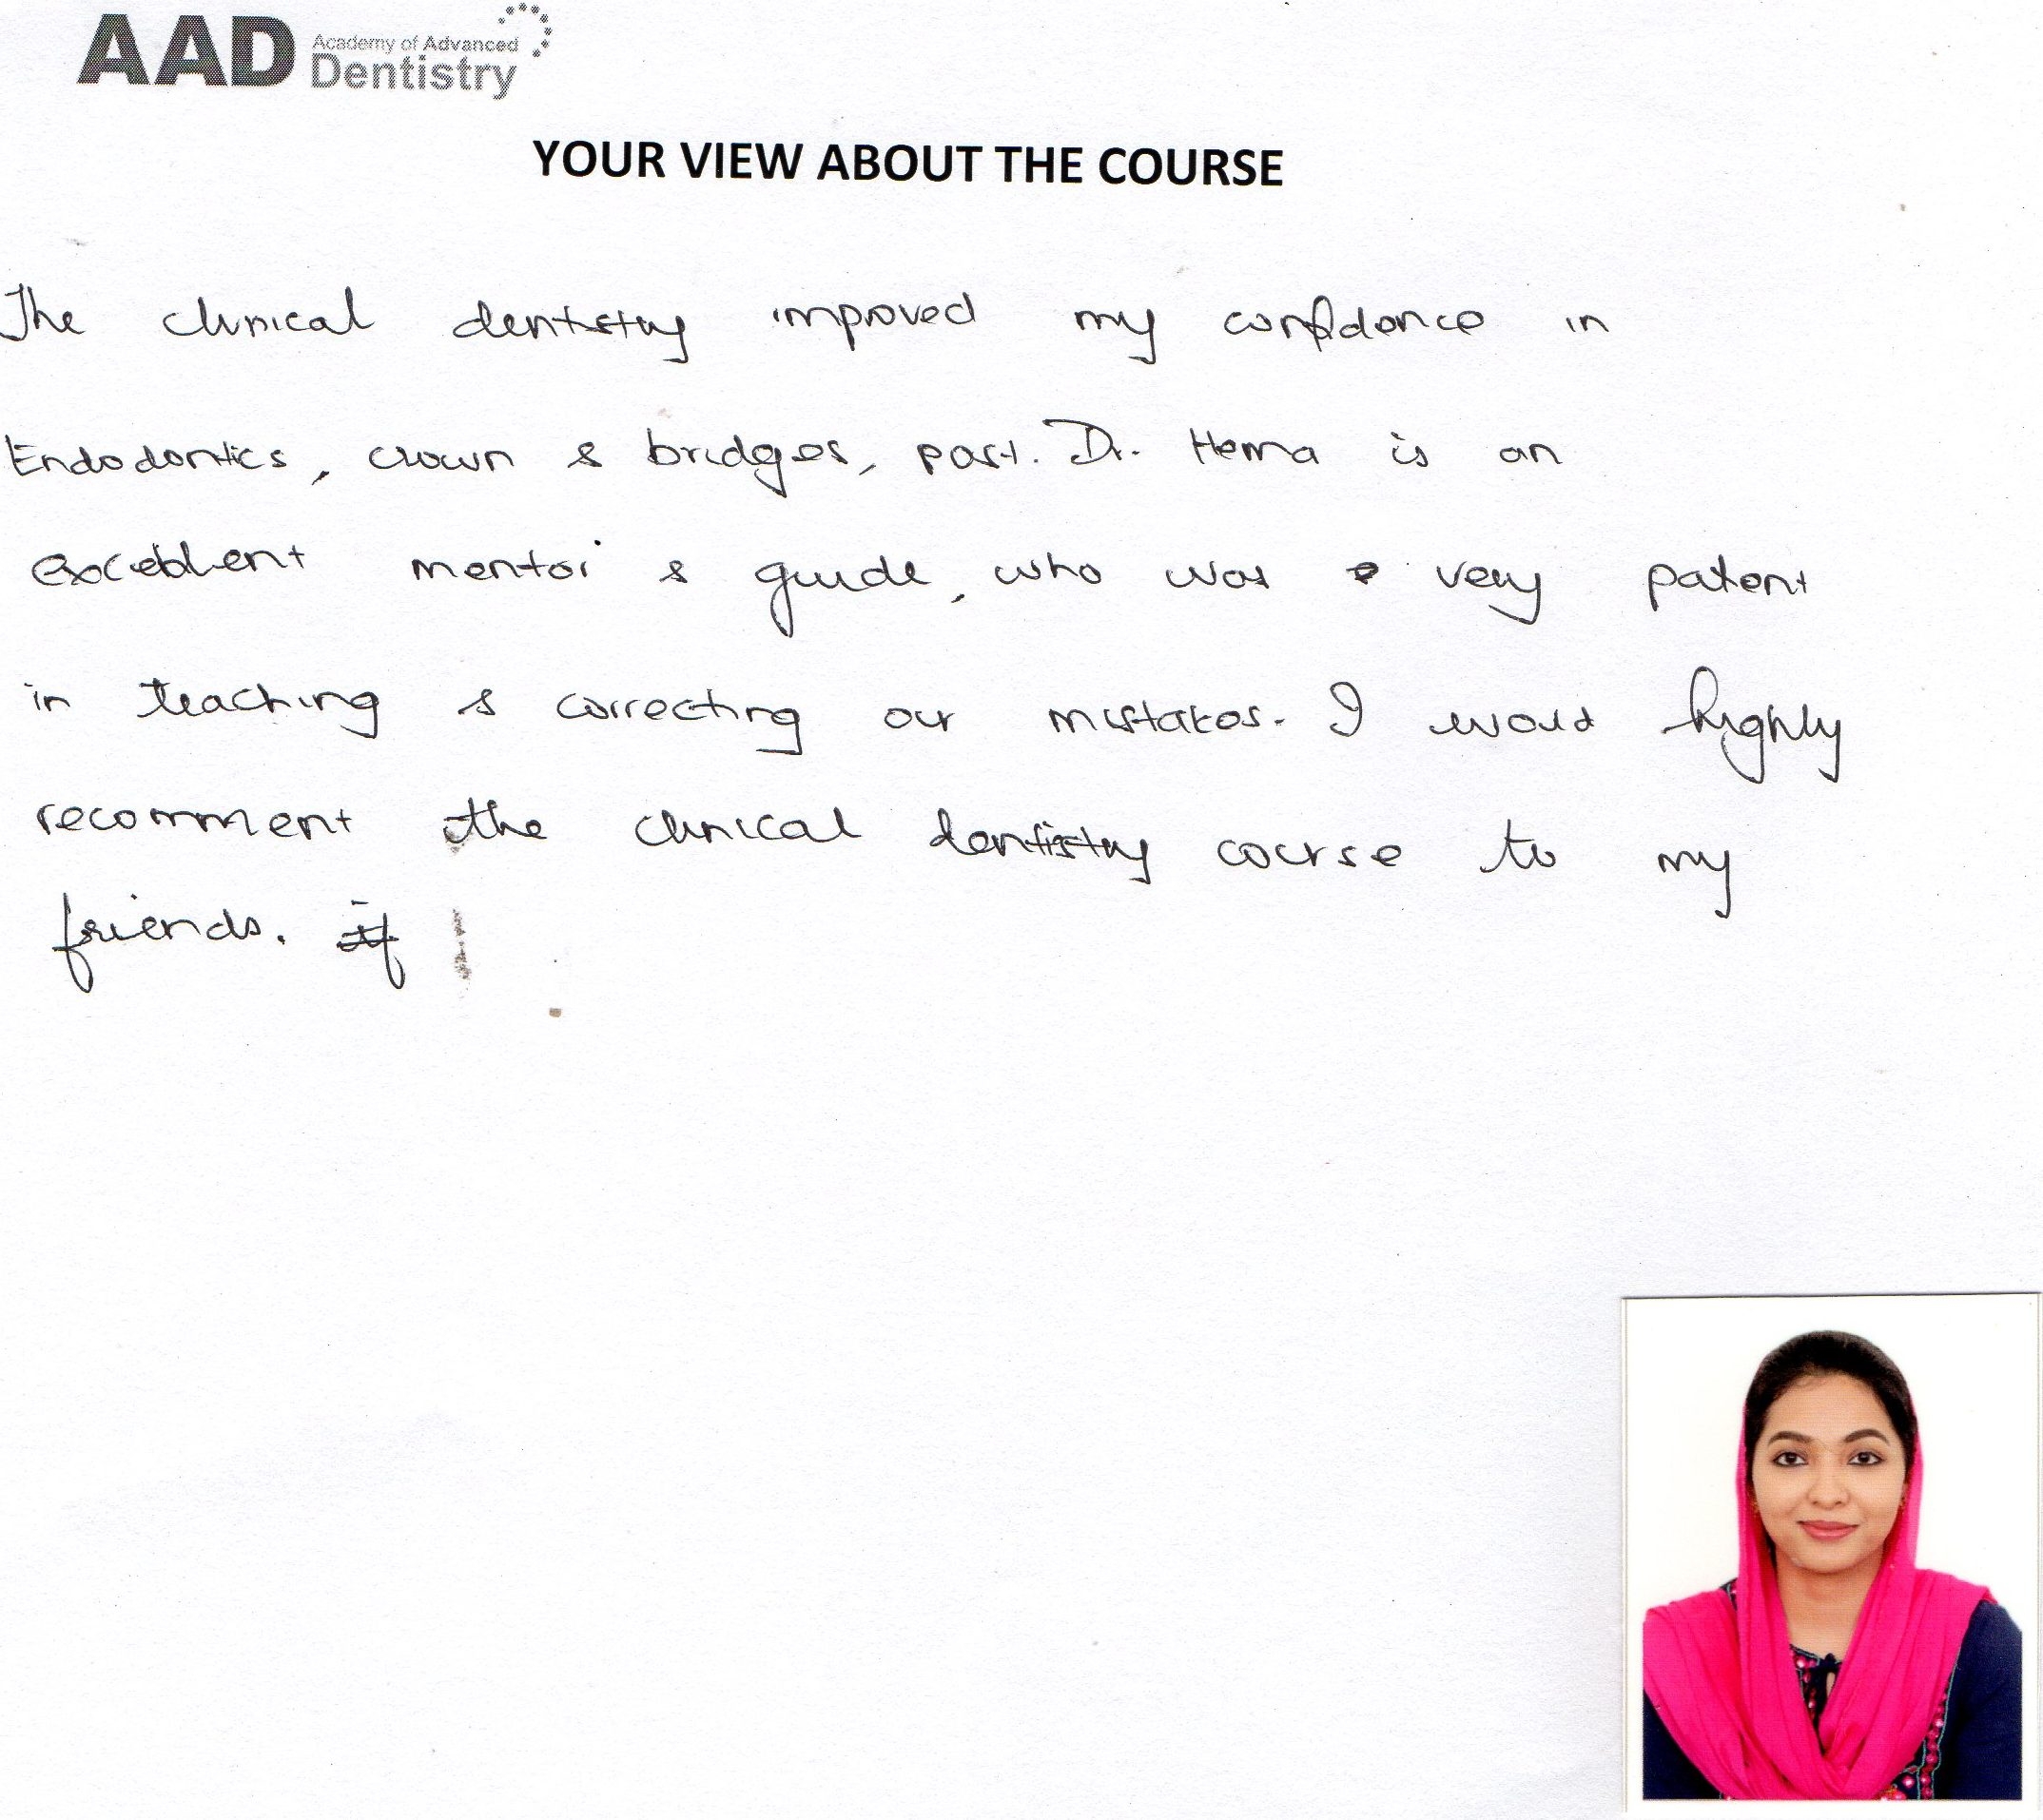 AAD Academy of Advanced
Dentistry
YOUR VIEW ABOUT THE COURSE
The clinical dentistry improved my confidence in
Endodontics, crown & bridges, post. Dr. Hema is an
excebllent mentor & guide, who was very patient
in teaching & correcting our mistakes. I would highly
recomment the clinical dentistry course to my
friends. if